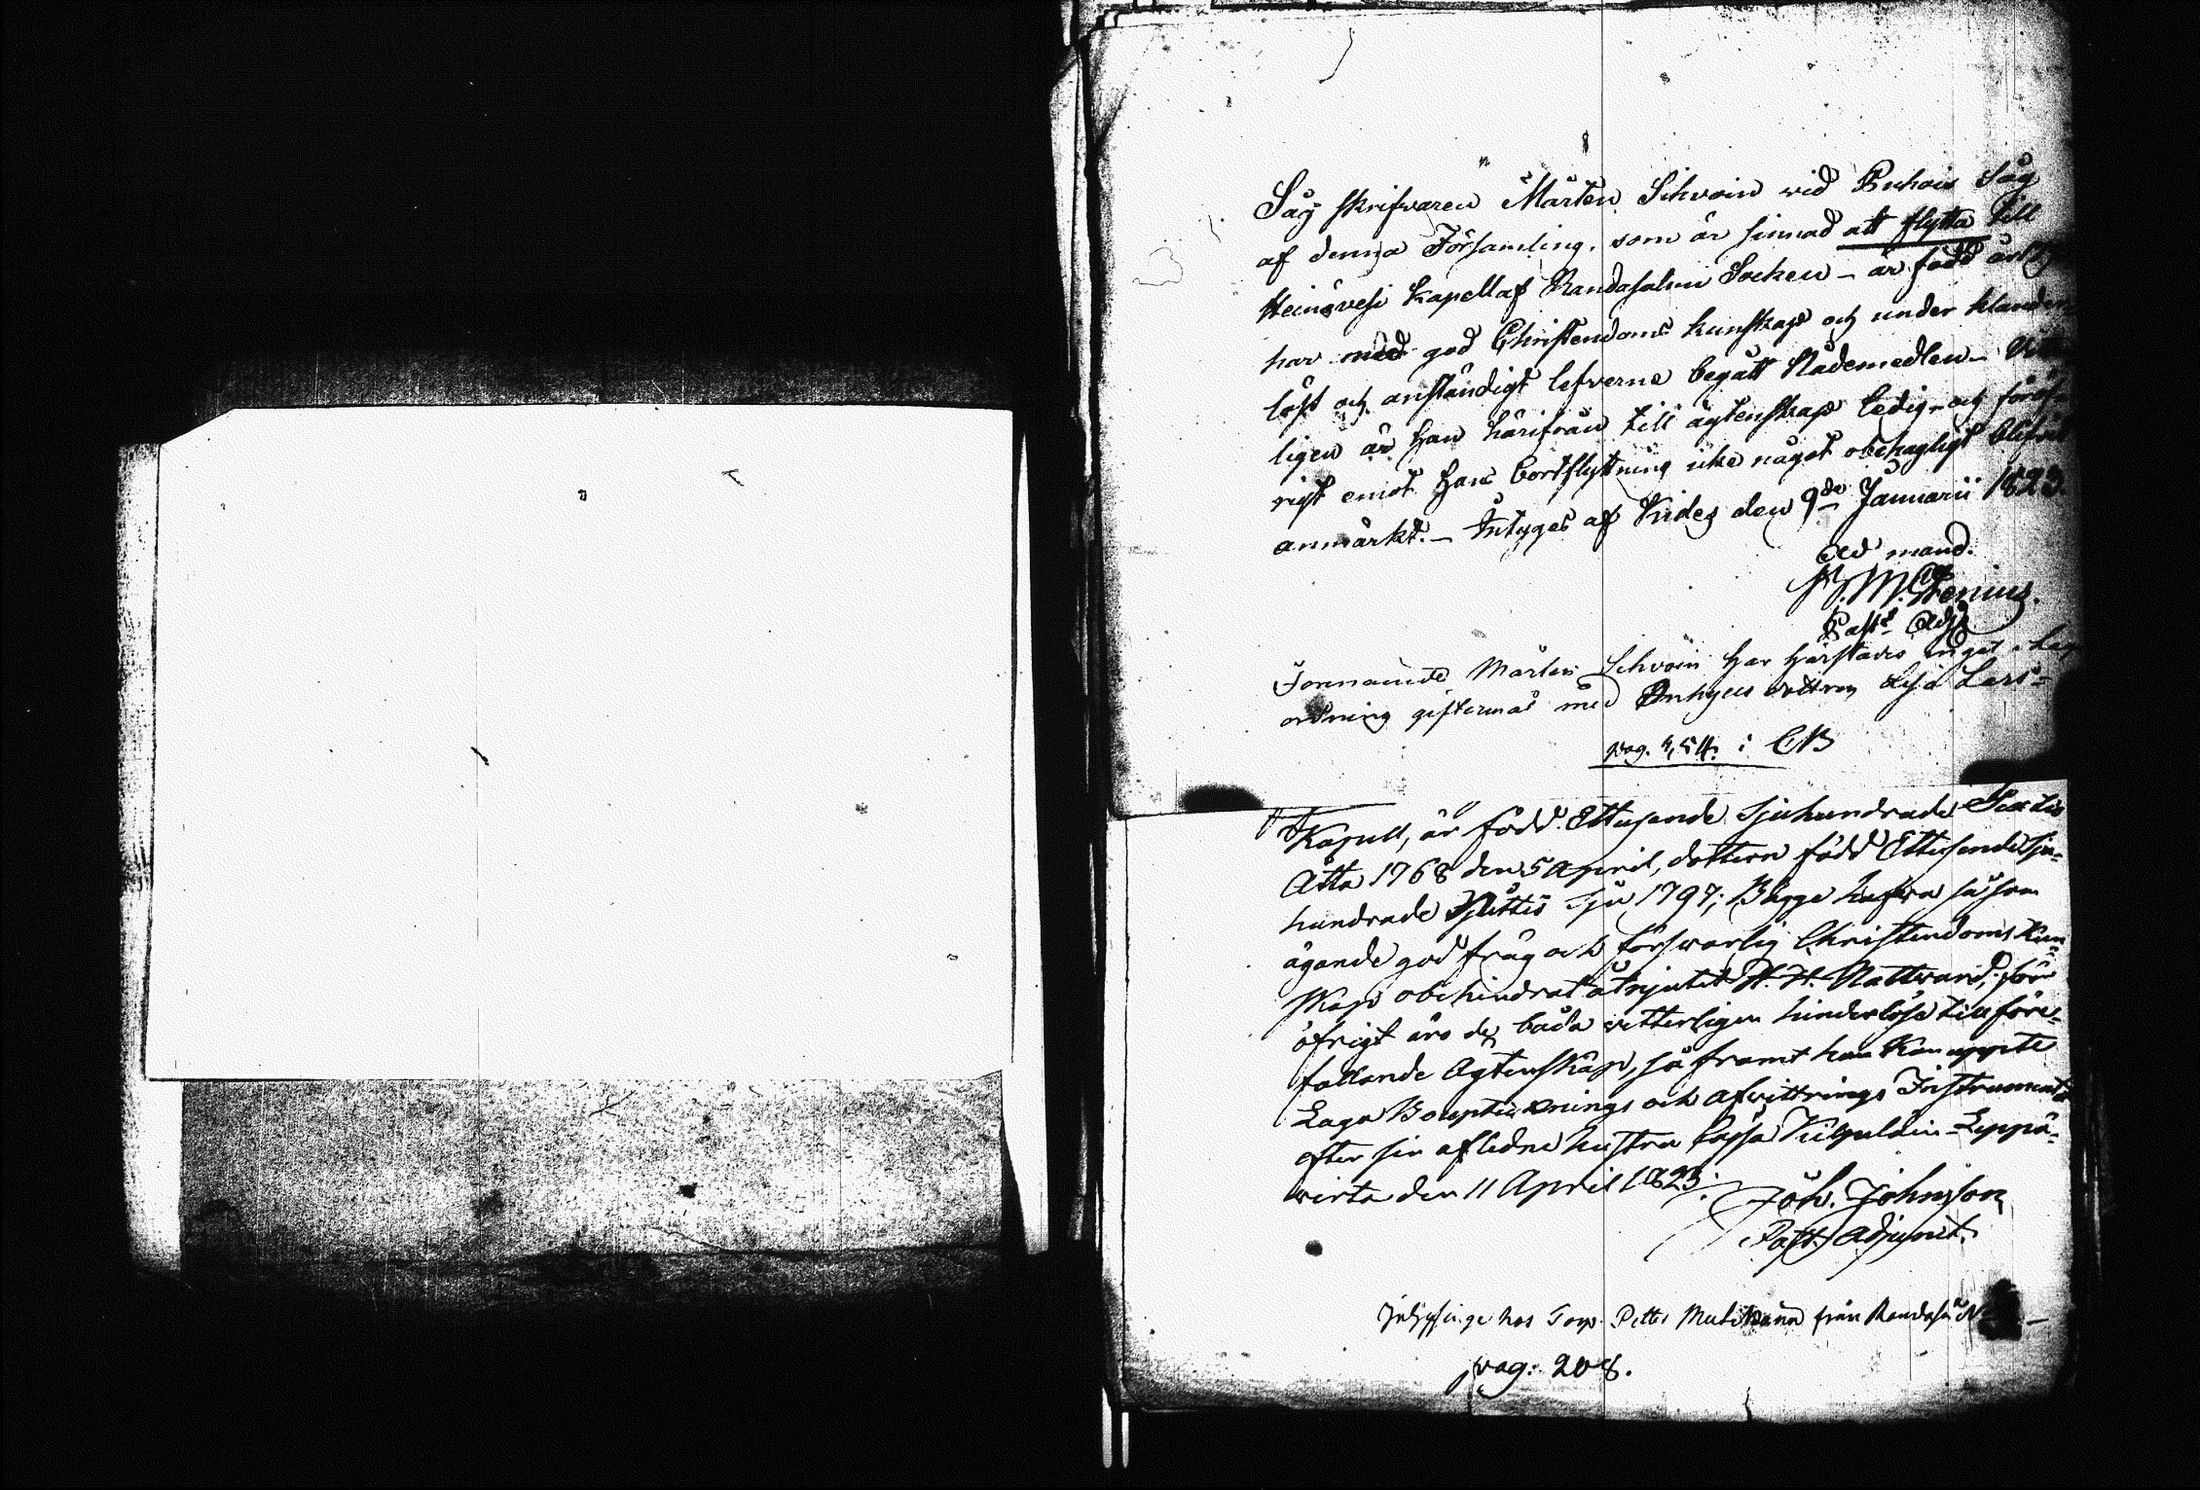 Såg skrifvaren Mårten Sihvoin vid Puhois Såg
af denna Församling, som är sinnad att flytta till
Heinävesi Kapell af Randasalmi Socken – är född år
har med god Christendoms kunskap och under klander
löst och anständigt lefverne begått Nådemedlen –
ligen är han härifrån till ägtenskap ledig – och föröf-
rigt emot hans bortflyttning icke något obehagligt blifvit
anmärkt. – Intygas af Kides den 9de Januarii 1823.
Ad mand.
Stenius.
Past. Adj.
Förenämnde Mårten Sihvoin har härstädes inget
ordning giftermål med Inhyses dottren Lisa Lars-
pag. 454. i CB
Kapell, är född Ettusende Sjuhundrade Sextio
Åtta 1768 den 5 April, dottern född Ettusende Sju-
hundrade Nittio Sju 1797; Bägge hafva såsom
ägande god fräg och försvarlig Christendoms Kun-
skap obehindrat åtnjutit H. H. Nattvard; för
öfrigt äro de båda vitterligen hinderlöse till före-
fallande Ägtenskap, så framt han kan uppte
Laga Boupteknings och afvittrings Instrument
efter sin aflidne hustru Cajsa Kilpuläin – Leppä-
virta den 11 April 1823.
Joh. Johnsson
Past. Adjunct.
Inhysinge hos Torp. Petter Mutikain från Randasa
pag: 208.